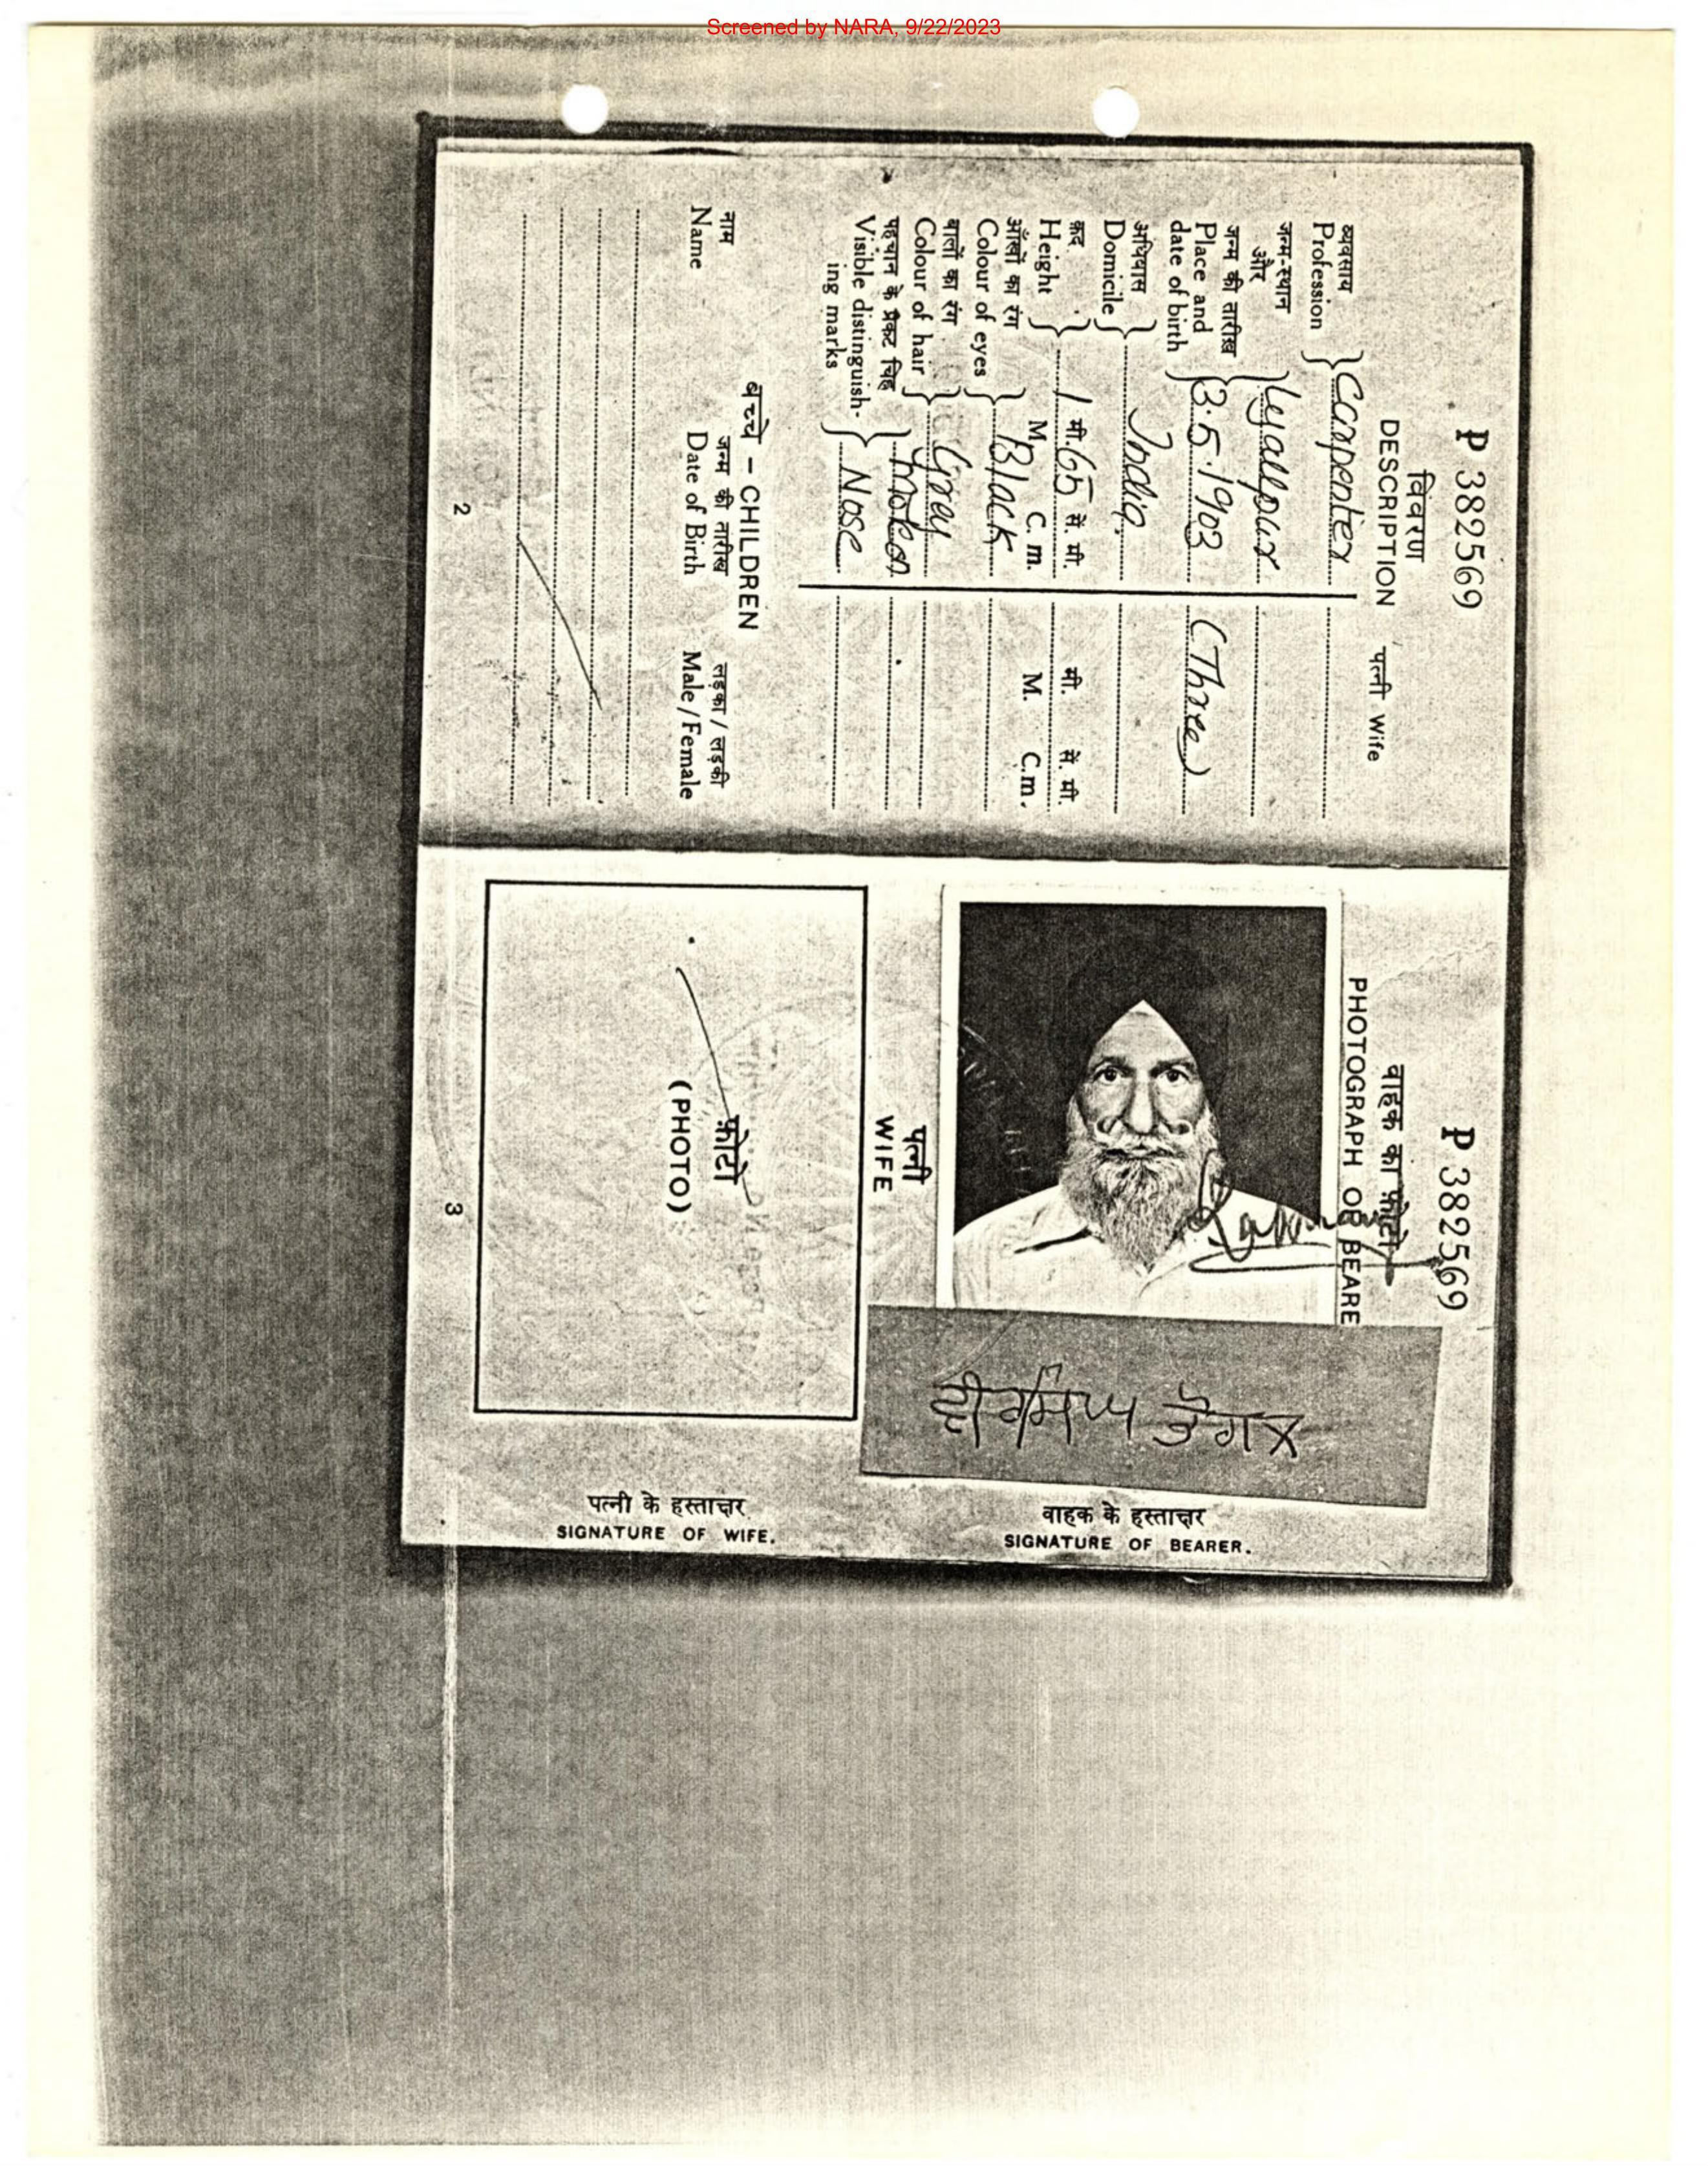 Screened by NARA, 9/22/2023
P 382569
विवरण
DESCRIPTION
पत्नी Wife
व्यवसाय
Profession
Carpenter
जन्म-स्थान
और
Lyallpur
जन्म की तारीख
Place and
date of birth
3.5.1903 (Three)
अधिवास
Domicile
India.
क़द
Height
1 मी. 65 सें. मी.
M. C. m.
मी. सें. मी.
M. C.m.
आँखों का रंग
Colour of eyes
Black
बालों का रंग
Colour of hair
Gray
पहचान के प्रकट चिह्न
Visible distinguish-
ing marks
Nose
बच्चे – CHILDREN
नाम जन्म की तारीख लड़का / लड़की
Name Date of Birth Male / Female
2
P 382569
वाहक का फ़ोटो
PHOTOGRAPH OF BEARE
पत्नी
WIFE
फ़ोटो
(PHOTO)
3
वाहक के हस्ताक्षर
SIGNATURE OF BEARER.
पत्नी के हस्ताक्षर
SIGNATURE OF WIFE.